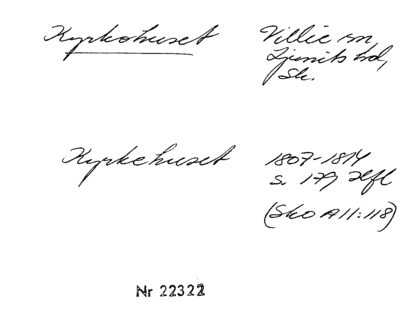 Kyrkohuset Villie sn
Ljunits hd,
Sk.
Kyrkehuset 1807-1814
s. 179 Hfl
(Sko A11:118)
Nr 22322